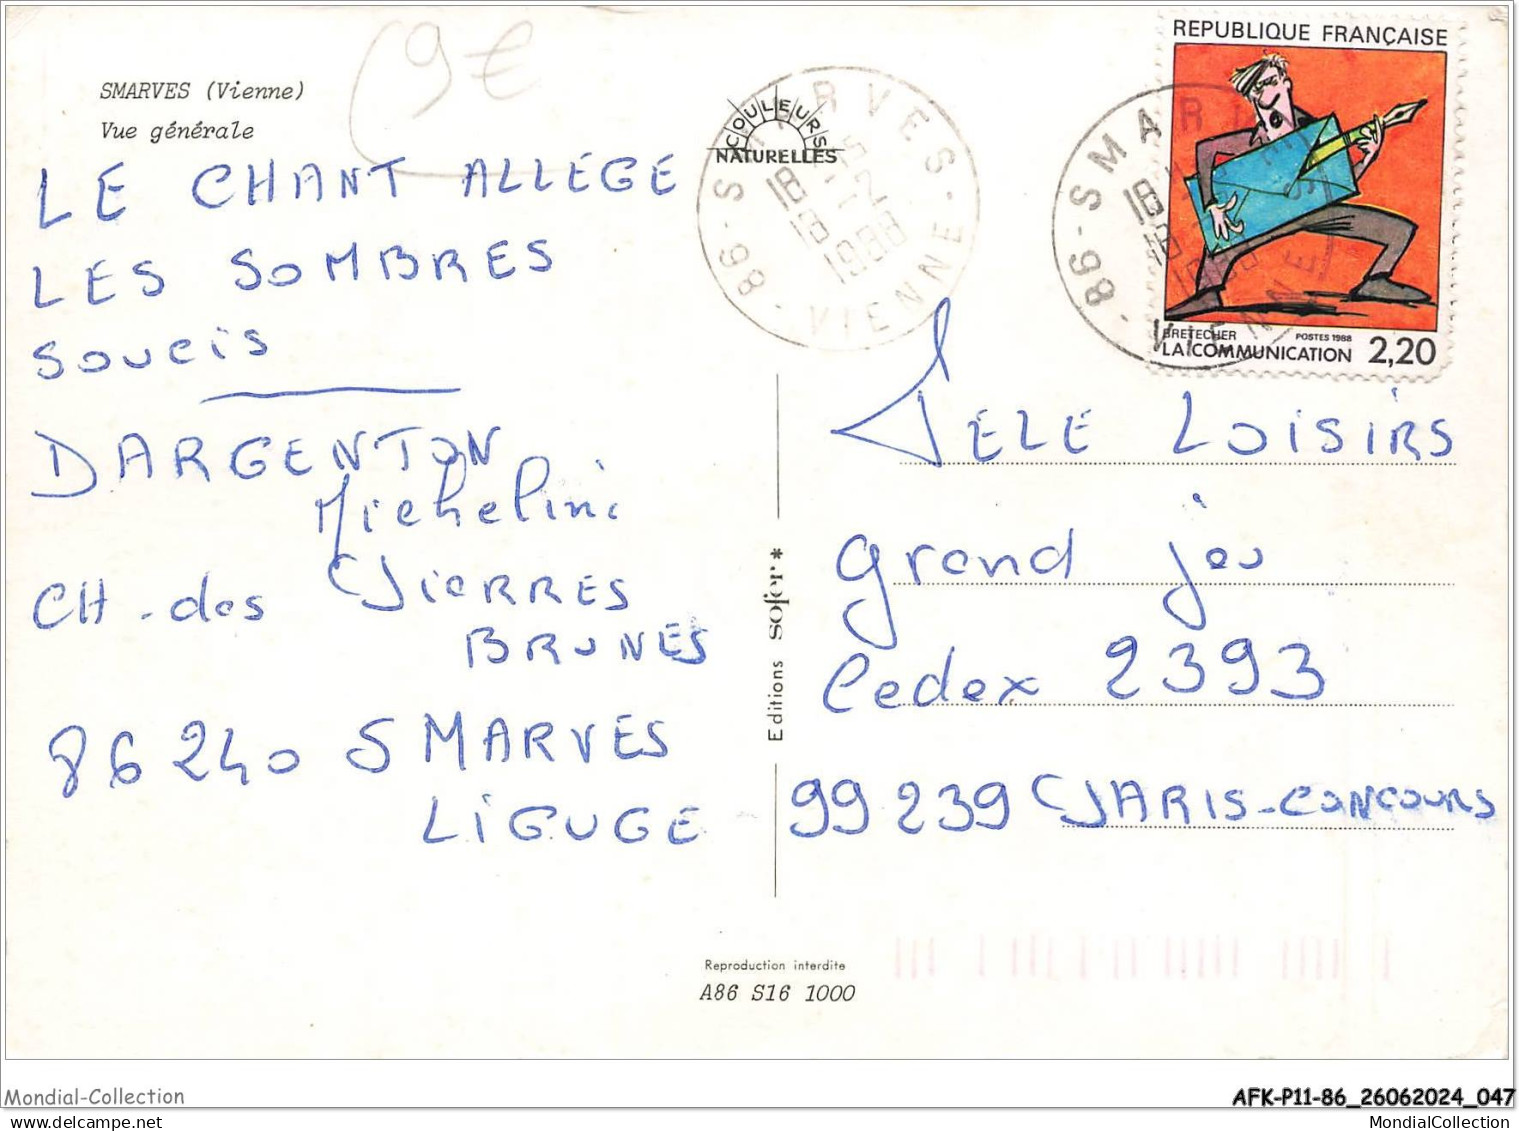 9€
SMARVES (Vienne)
Vue générale
LE CHANT ALLEGE
LES SOMBRES
SOUCIS
DARGENTON
Micheline
CH. des PIERRES
BRUNES
86240 SMARVES
LIGUGE
COULEURS
NATURELLES
86 - SMARVES - VIENNE
18 H
18 -2
1988
REPUBLIQUE FRANÇAISE
BRETECHER POSTES 1988
LA COMMUNICATION 2,20
86 - SMARVES - VIENNE
TELE LOISIRS
grand jeu
Cedex 2393
99239 PARIS-CONCOURS
Editions sofer*
Reproduction interdite
A86 S16 1000
Mondial-Collection
AFK-P11-86_26062024_047
mondial-collection.com
MondialCollection